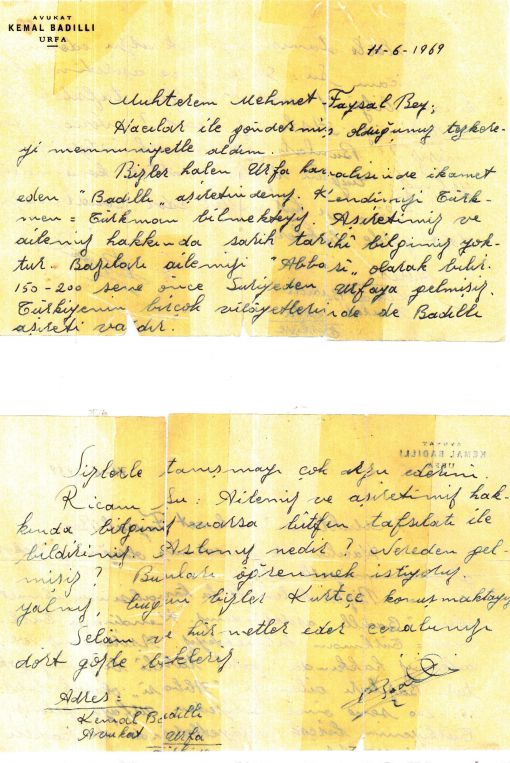 AVUKAT
KEMAL BADILLI
URFA
11-6-1969
Muhterem Mehmet Faysal Bey;
Hacılar ile göndermiş olduğunuz tezkere-
yi memnuniyetle aldım.
Bizler halen Urfa havalisinde ikamet
eden "Badıllı" aşiretindeniz. Kendimizi Türk-
men = Türkman bilmekteyiz Aşiretimiz ve
ailemiz hakkında sarih tarihî bilgimiz yok-
tur. Bazıları ailemizi "Abbasi" olarak bilir.
150-200 sene önce Suriyeden Urfaya gelmişiz.
Türkiyenin birçok vilâyetlerinde de Badıllı
aşireti vardır.
AVUKAT
KEMAL BADILLI
URFA
Sizlerle tanışmayı çok arzu ederim.
Ricam şu: Ailemiz ve aşiretimiz hak-
kında bilginiz varsa lütfen tafsilatı ile
bildiriniz Aslımız nedir? Nereden gel-
mişiz? Bunları öğrenmek istiyoruz.
Yalnız, bugün bizler Kürtçe konuşmaktayız
Selâm ve hürmetler eder cevabınızı
dört gözle bekleriz
Adres
Kemal Badıllı
Avukat Urfa